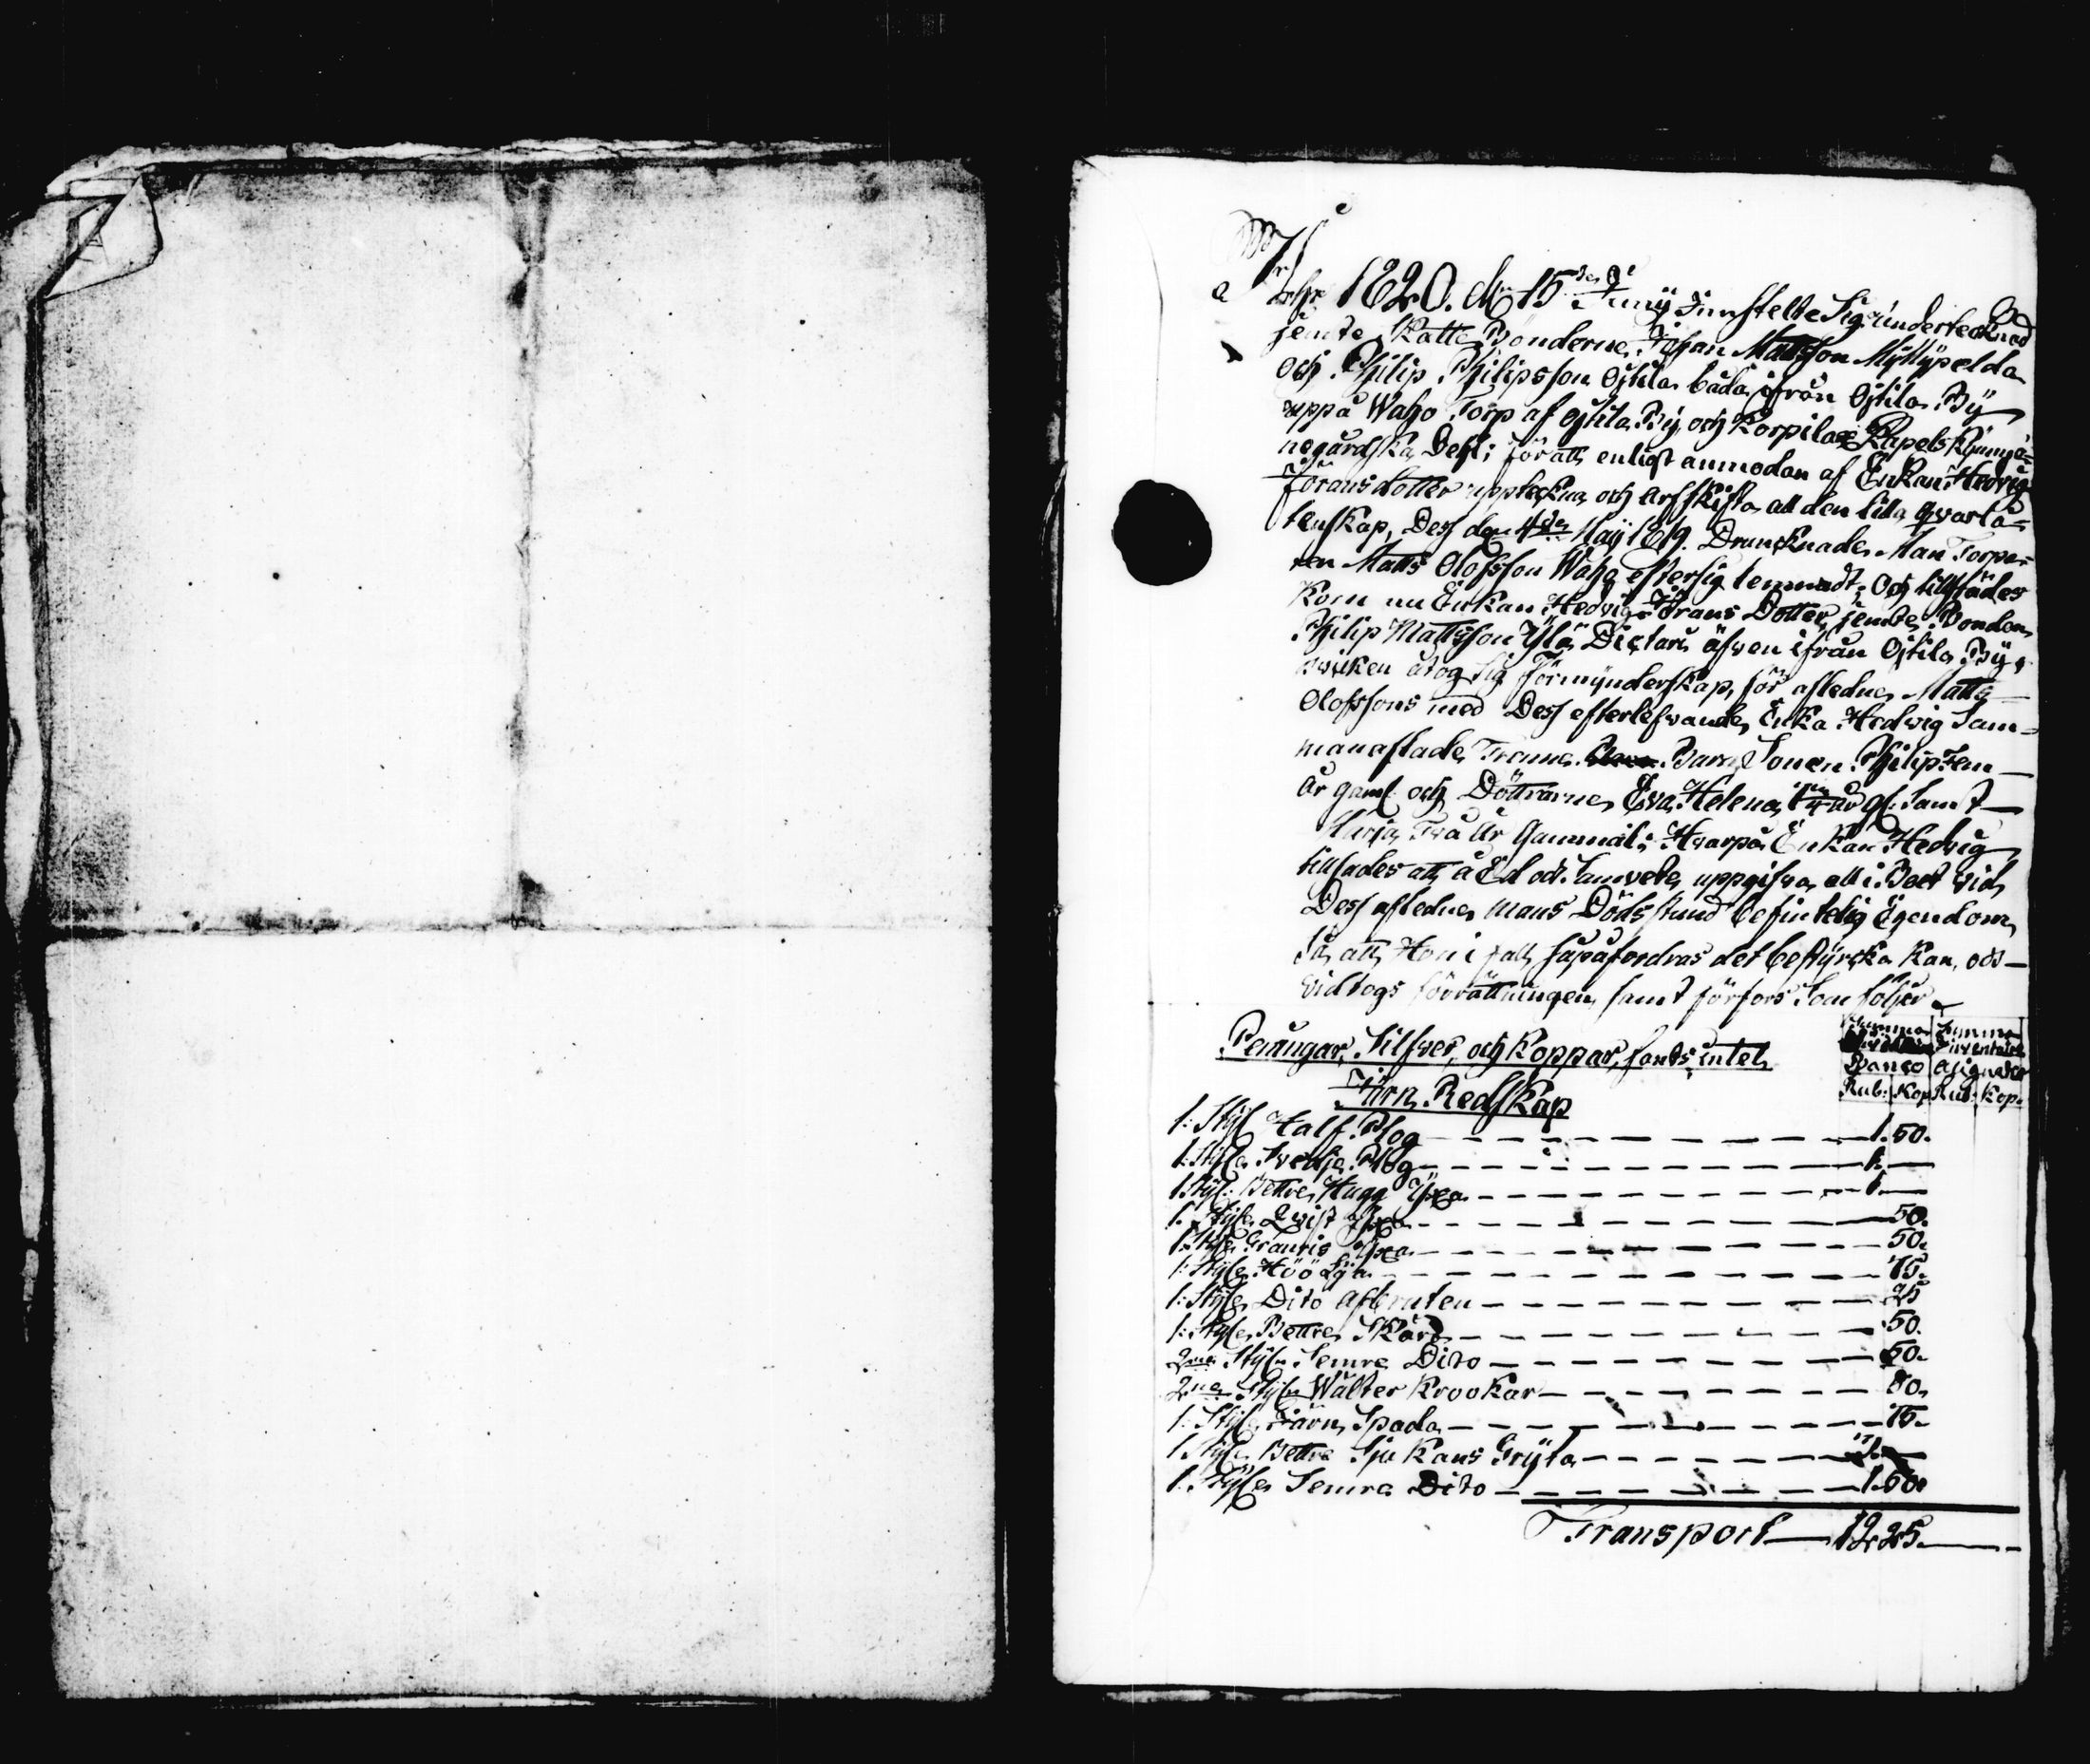 Åhr 1820. d. 15de Junij Innstelte Sig undertecknad
jemte Skatte Bönderne Johan Mattsson Myllypelda
och Philip Philipsson Ojtila båda ifrån Ojtila By
uppå Waho Torp af Ojtila By och Korpilax Kapels Kyunye=
negårdska Dehl; för att enligt anmodan af Enkan Hedvig
Jöransdotter uppteckna och arfskifta all den lilla qvarlå=
tenskap, Dess den 4de Maij 1819. Drunknade Man Torpa=
ren Matts Olofsson Waho efter sig lemnadt. Och tillstädes
Kom nu Enkan Hedvig Jörans Dotter jemte Bonden
Philip Mattsson Ylä Dictari äfven ifrån Ojtila By,
hvilken åtog sig Förmynderskap, för afledne Matts
Olofssons med Dess efterlefvande Enka Hedvig Sam=
manaflade Trenne Barn Sonen Philip Fem
år gaml och Döttrarne Eva Helena år gl. Samt
Maria Två År Gammal; Hvarpå Enkan Hedvig
tillsades att å Ed och Samvete uppgifva all i Boet vid
Dess aflednes mans Dödsstund befintelig Egendom
Så att Hon i fall så påfordras det bestyrcka Kan, och
vidtogs förrättningen samt förfors Som följer
Summa Summa
Inventarie
Penningar, Silfver, och Koppar, fants intet
Banco Asignater
Rub: Kop Rub: Kop.
Järn Redskap
1: Styc Half Plog 1.50.
1: Styc Svedje Plog 1.
1 Styc: Bettre Hugg Yxa 1.
1. Styc Qvist Yxa 50.
1: Styc Yxa 50.
1: Styc Höö Lya 75.
1: Styc Dito afbruten 25
1: Styc Bettre Skära 50.
2ne Stycn Semre Dito 50.
2ne Stycn Walter Krookar 80.
1: Styc Järn Spada 75.
1 Styc Bettre Sju Kans Gryta
1: Styc Semre Dito 1.50.
Transport 12.25.